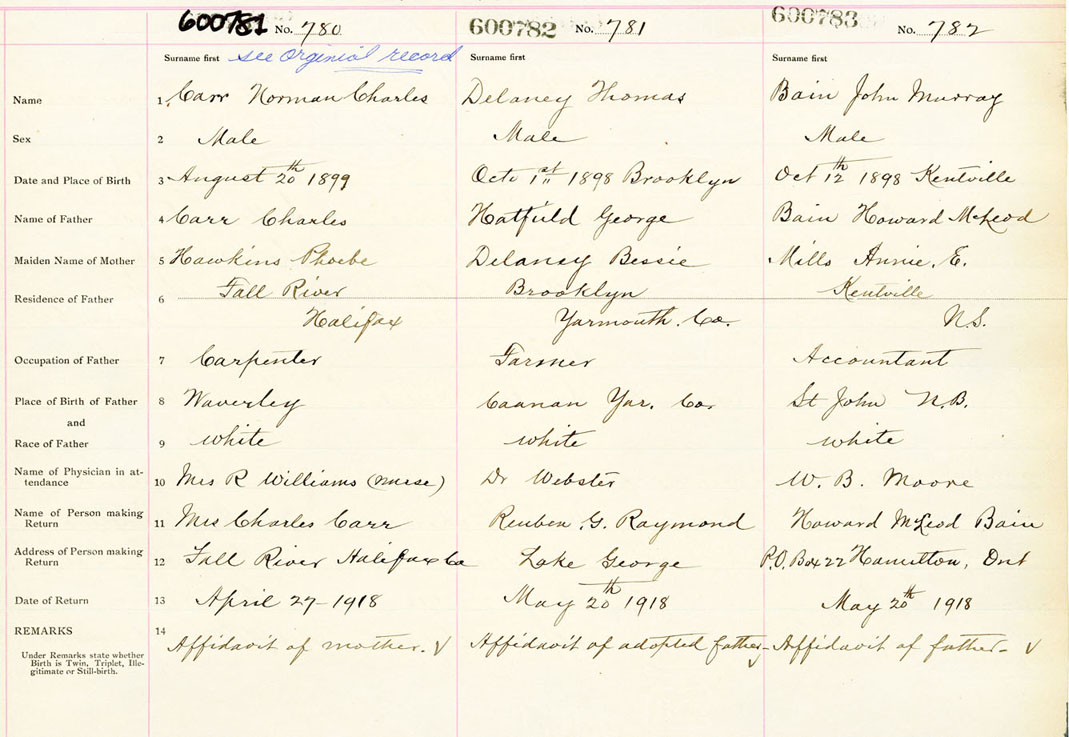 600781 No. 780 600782 No. 781 600783 No. 782
Surname first see Orginial record Surname first Surname first
Name 1 Carr Norman Charles Delaney Thomas Bain John Murray
Sex 2 Male Male Male
Date and Place of Birth 3 August 20th 1899 Octo 1st 1898 Brooklyn Oct 12th 1898 Kentville
Name of Father 4 Carr Charles Hatfield George Bain Howard McLeod
Maiden Name of Mother 5 Hawkins Phoebe Delaney Bessie Mills Annie. E.
Residence of Father 6 Fall River Brooklyn Kentville
Halifax Yarmouth. Co. N.S.
Occupation of Father 7 Carpenter Farmer Accountant
Place of Birth of Father 8 Waverley Caanan Yar. Co. St John N.B.
and
Race of Father 9 white white white
Name of Physician in at-
tendance 10 Mrs R Williams (nurse) Dr Webster W. B. Moore
Name of Person making
Return 11 Mrs Charles Carr Reuben G. Raymond Howard McLeod Bain
Address of Person making
Return 12 Fall River Halifax Co Lake George P.O. Box 22 Hamilton, Ont
Date of Return 13 April 27-1918 May 20th 1918 May 20th 1918
REMARKS 14 Affidavit of mother. √ Affidavit of adopted father √ Affidavit of father- √
Under Remarks state whether
Birth is Twin, Triplet, Ille-
gitimate or Still-birth.